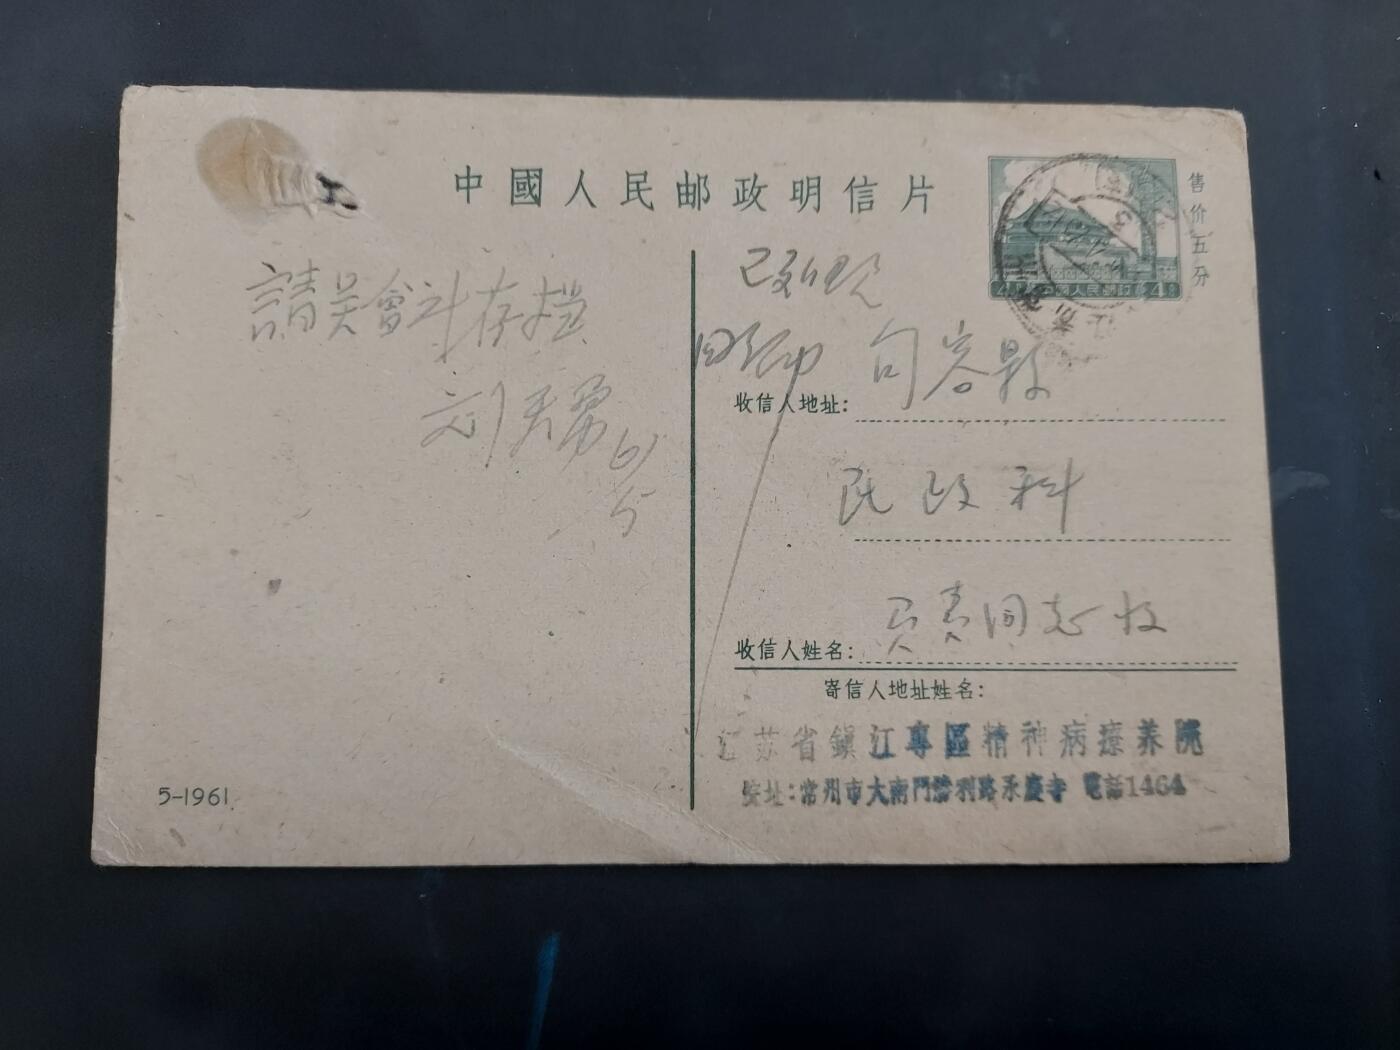 中國人民邮政明信片
售价五分
中国人民邮政
4 4
請吴會计存档
句容縣
收信人地址：
民政科
同志收
收信人姓名：
寄信人地址姓名：
江苏省鎮江專區精神病療养院
院址：常州市大南門勝利路永慶寺 電話1464
5-1961